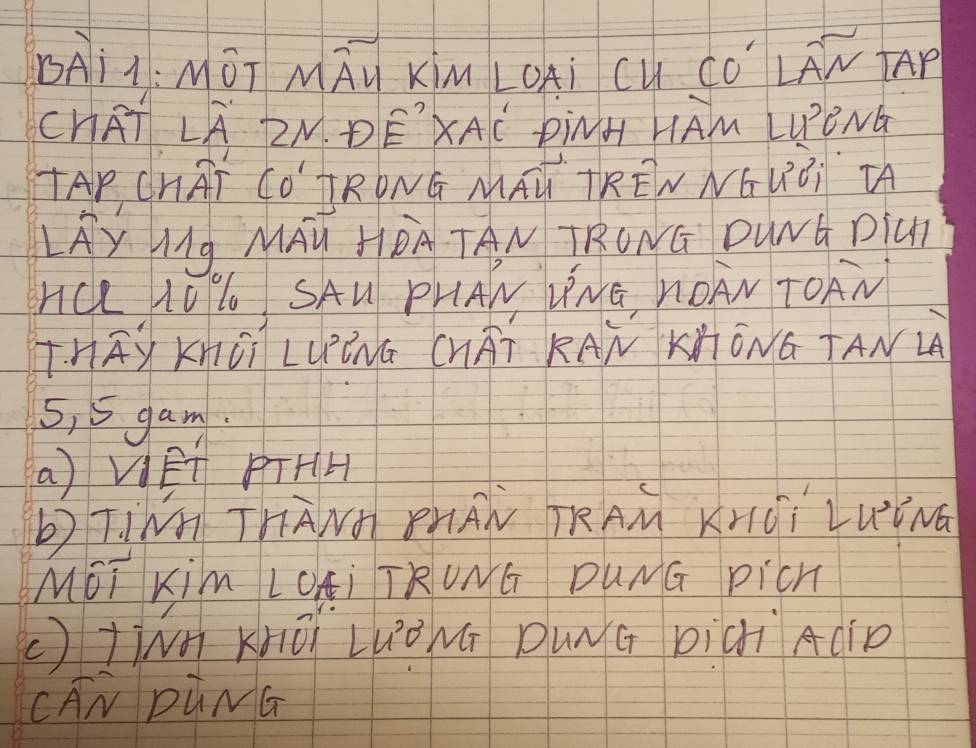 BÀI 1: MỘT MẪU KIM LOẠI CU CÓ LẪN TẠP
CHẤT LÀ ZN. ĐỂ XÁC ĐỊNH HÀM LƯỢNG
TẠP CHẤT CÓ TRONG MẪU TRÊN NGƯỜI TA
LẤY 11g MẪU HÒA TAN TRONG DUNG DỊCH
HCL 10%, SAU PHẢN ỨNG HOÀN TOÀN
THẤY KHỐI LƯỢNG CHẤT RẮN KHÔNG TAN LÀ
5,5 gam.
a) VIẾT PTHH
b) TÍNH THÀNH PHẦN TRĂM KHỐI LƯỢNG
MỖI KIM LOẠI TRONG DUNG DỊCH
c) TÍNH KHỐI LƯỢNG DUNG DỊCH ACID
CẦN DÙNG